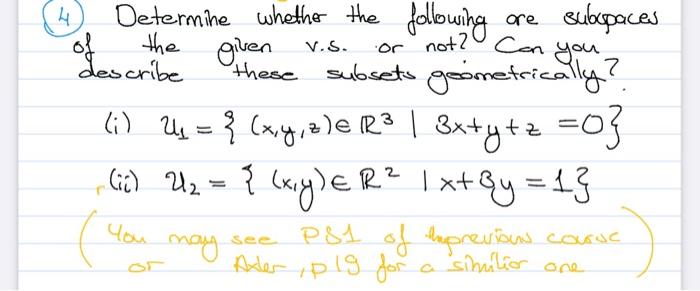 4 Determine whether the following are subspaces
of the given v.s. or not? Can you
describe these subsets geometrically?
(i) U₁ = { (x,y,z) ∈ ℝ³ | 3x+y+z = 0}
(ii) U₂ = { (x,y) ∈ ℝ² | x+3y = 1}
(You may see PS1 of the previous course
or Axler, p19 for a similior one)